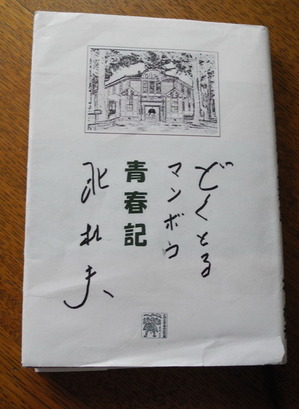 どくとる
マンボウ
青春記
北杜夫